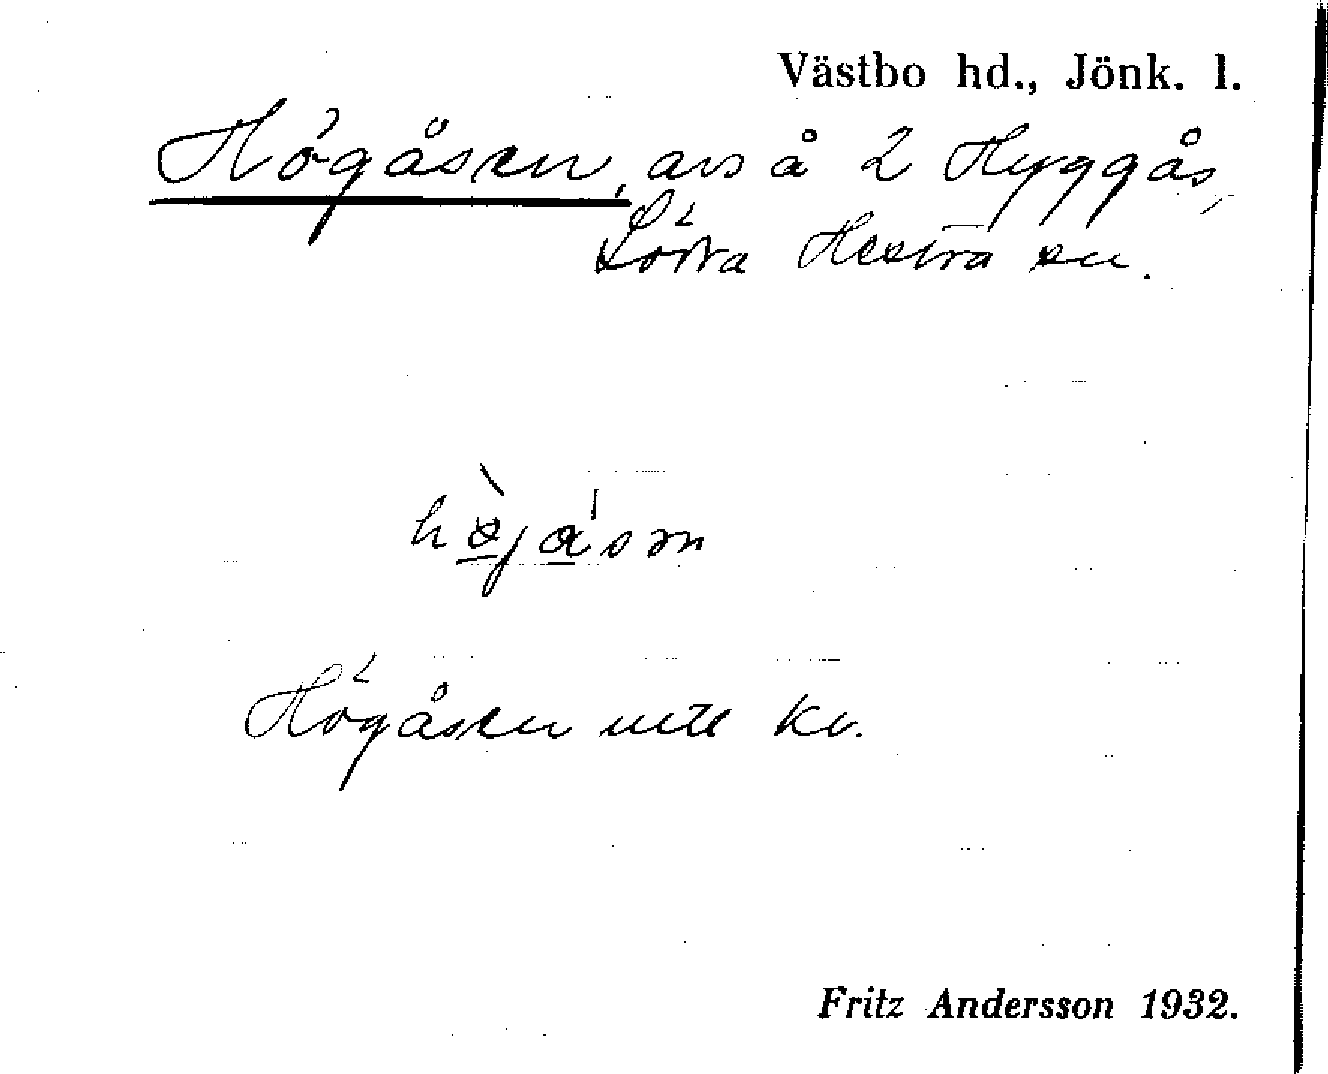 Västbo hd., Jönk. l.
Högåsen, avs å 2 Hyggås,
Södra Hestra sn.
högåsen
Högåsen uttl kv.
Fritz Andersson 1932.